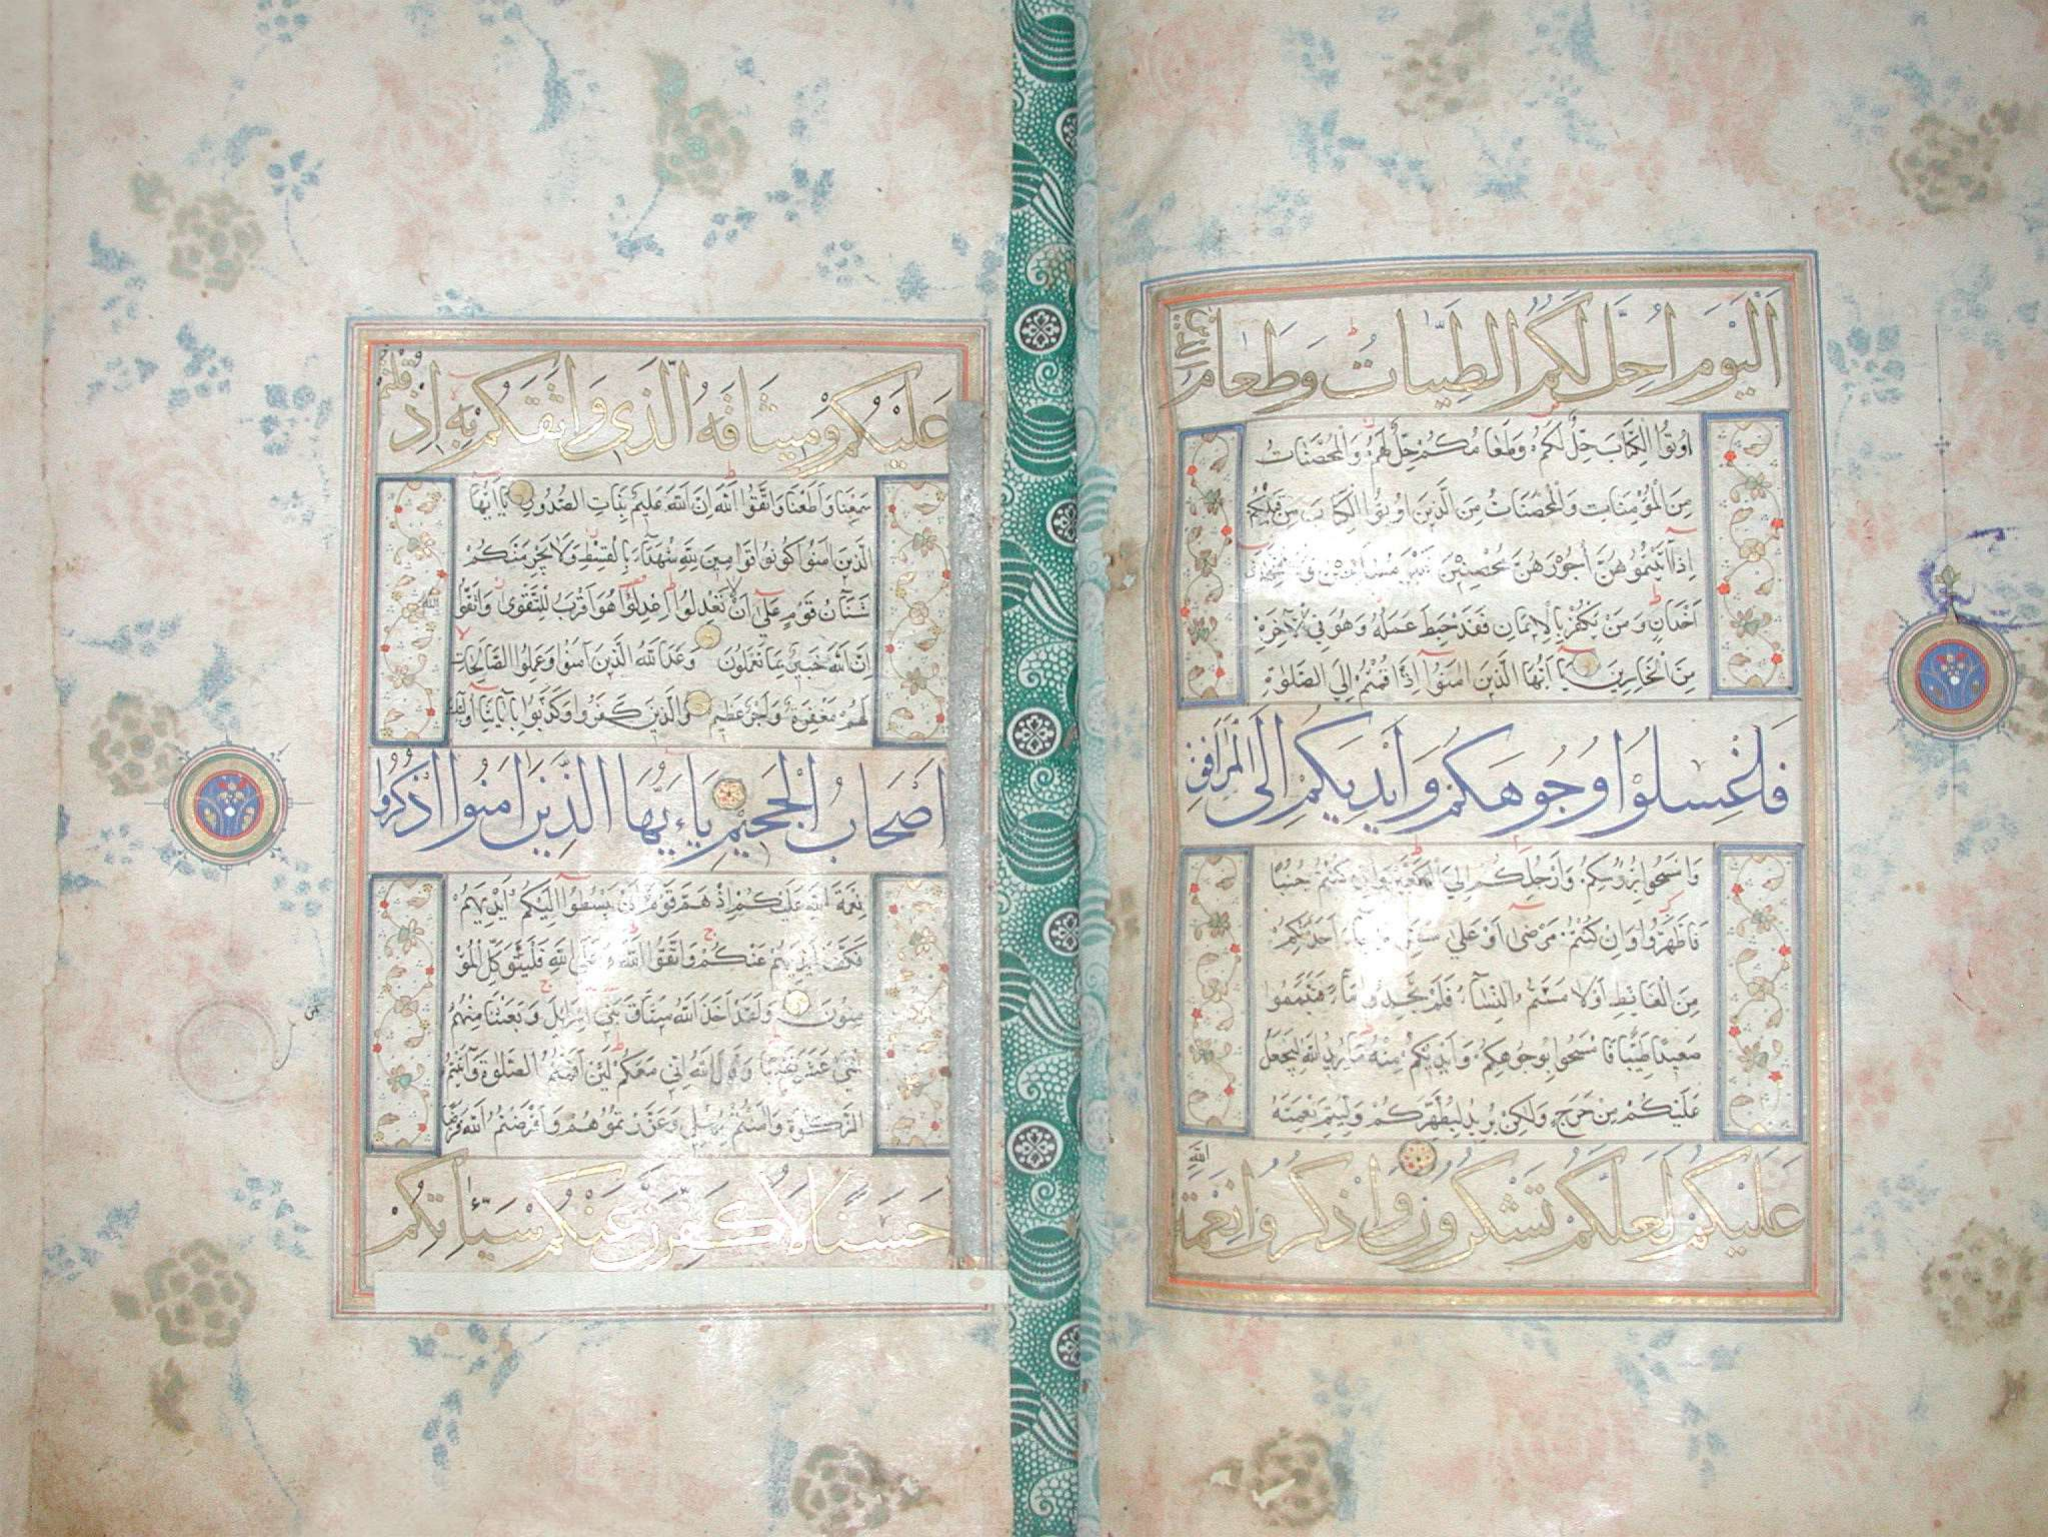 اَلْيَوْمَ اُحِلَّ لَكُمُ الطَّيِّبَاتُ وَطَعَامُ الَّذِينَ
اُوتُوا الْكِتَابَ حِلٌّ لَكُمْ وَطَعَامُكُمْ حِلٌّ لَهُمْ وَالْمُحْصَنَاتُ
مِنَ الْمُؤْمِنَاتِ وَالْمُحْصَنَاتُ مِنَ الَّذِينَ اُوتُوا الْكِتَابَ مِنْ قَبْلِكُمْ
اِذَا آتَيْتُمُوهُنَّ اُجُورَهُنَّ مُحْصِنِينَ غَيْرَ مُسَافِحِينَ وَلَا مُتَّخِذِي
اَخْدَانٍ وَمَنْ يَكْفُرْ بِالْاِيمَانِ فَقَدْ حَبِطَ عَمَلُهُ وَهُوَ فِي الْآخِرَةِ
مِنَ الْخَاسِرِينَ يَا اَيُّهَا الَّذِينَ امَنُوا اِذَا قُمْتُمْ اِلَى الصَّلٰوةِ
فَاغْسِلُوا وُجُوهَكُمْ وَاَيْدِيَكُمْ اِلَى الْمَرَافِقِ
وَامْسَحُوا بِرُؤُسِكُمْ وَاَرْجُلَكُمْ اِلَى الْكَعْبَيْنِ وَاِنْ كُنْتُمْ جُنُبًا
فَاطَّهَّرُوا وَاِنْ كُنْتُمْ مَرْضٰى اَوْ عَلٰى سَفَرٍ اَوْ جَاءَ اَحَدٌ مِنْكُمْ
مِنَ الْغَائِطِ اَوْ لَامَسْتُمُ النِّسَاءَ فَلَمْ تَجِدُوا مَاءً فَتَيَمَّمُوا
صَعِيدًا طَيِّبًا فَامْسَحُوا بِوُجُوهِكُمْ وَاَيْدِيكُمْ مِنْهُ مَا يُرِيدُ اللّٰهُ لِيَجْعَلَ
عَلَيْكُمْ مِنْ حَرَجٍ وَلٰكِنْ يُرِيدُ لِيُطَهِّرَكُمْ وَلِيُتِمَّ نِعْمَتَهُ
عَلَيْكُمْ لَعَلَّكُمْ تَشْكُرُونَ وَاذْكُرُوا نِعْمَةَ اللّٰهِ
عَلَيْكُمْ وَمِيثَاقَهُ الَّذِي وَاثَقَكُمْ بِهِ اِذْ قُلْتُمْ
سَمِعْنَا وَاَطَعْنَا وَاتَّقُوا اللّٰهَ اِنَّ اللّٰهَ عَلِيمٌ بِذَاتِ الصُّدُورِ يَا اَيُّهَا
الَّذِينَ امَنُوا كُونُوا قَوَّامِينَ لِلّٰهِ شُهَدَاءَ بِالْقِسْطِ وَلَا يَجْرِمَنَّكُمْ
شَنَآنُ قَوْمٍ عَلٰى اَنْ لَا تَعْدِلُوا اِعْدِلُوا هُوَ اَقْرَبُ لِلتَّقْوٰى وَاتَّقُوا اللّٰهَ
اِنَّ اللّٰهَ خَبِيرٌ بِمَا تَعْمَلُونَ وَعَدَ اللّٰهُ الَّذِينَ آمَنُوا وَعَمِلُوا الصَّالِحَاتِ
لَهُمْ مَغْفِرَةٌ وَاَجْرٌ عَظِيمٌ وَالَّذِينَ كَفَرُوا وَكَذَّبُوا بِآيَاتِنَا اُولٰئِكَ
اَصْحَابُ الْجَحِيمِ يَاءَيُّهَا الَّذِينَ امَنُوا اذْكُرُوا
نِعْمَةَ اللّٰهِ عَلَيْكُمْ اِذْ هَمَّ قَوْمٌ اَنْ يَبْسُطُوا اِلَيْكُمْ اَيْدِيَهُمْ
فَكَفَّ اَيْدِيَهُمْ عَنْكُمْ وَاتَّقُوا اللّٰهَ وَعَلَى اللّٰهِ فَلْيَتَوَكَّلِ الْمُؤْ
مِنُونَ وَلَقَدْ اَخَذَ اللّٰهُ مِيثَاقَ بَنِي اِسْرَائِلَ وَبَعَثْنَا مِنْهُمُ
اثْنَيْ عَشَرَ نَقِيبًا وَقَالَ اللّٰهُ اِنِّي مَعَكُمْ لَئِنْ اَقَمْتُمُ الصَّلٰوةَ وَآتَيْتُمُ
الزَّكٰوةَ وَامَنْتُمْ بِرُسُلِي وَعَزَّرْتُمُوهُمْ وَاَقْرَضْتُمُ اللّٰهَ قَرْضًا
حَسَنًا لَاُكَفِّرَنَّ عَنْكُمْ سَيِّاٰتِكُمْ